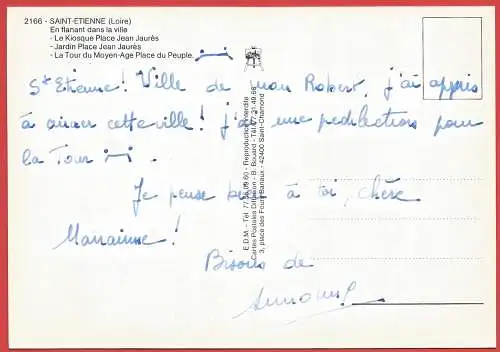 2166 - SAINT-ETIENNE (Loire)
En flanant dans la ville
- Le Kiosque Place Jean Jaurès
- Jardin Place Jean Jaurès
- La Tour du Moyen-Age Place du Peuple.
St Etienne! Ville de mon Robert, j'ai appris
à aimer cette ville! j'ai une predilection pour
la Tour
Je pense bien à toi, chère
Marraine!
Bisous de
E.D.M. - Tél. 77.
Cartes Postales Diffusion - B. Bouard - Tél. 77.31.49.66
3, place des Fours Banaux - 42400 Saint-Chamond